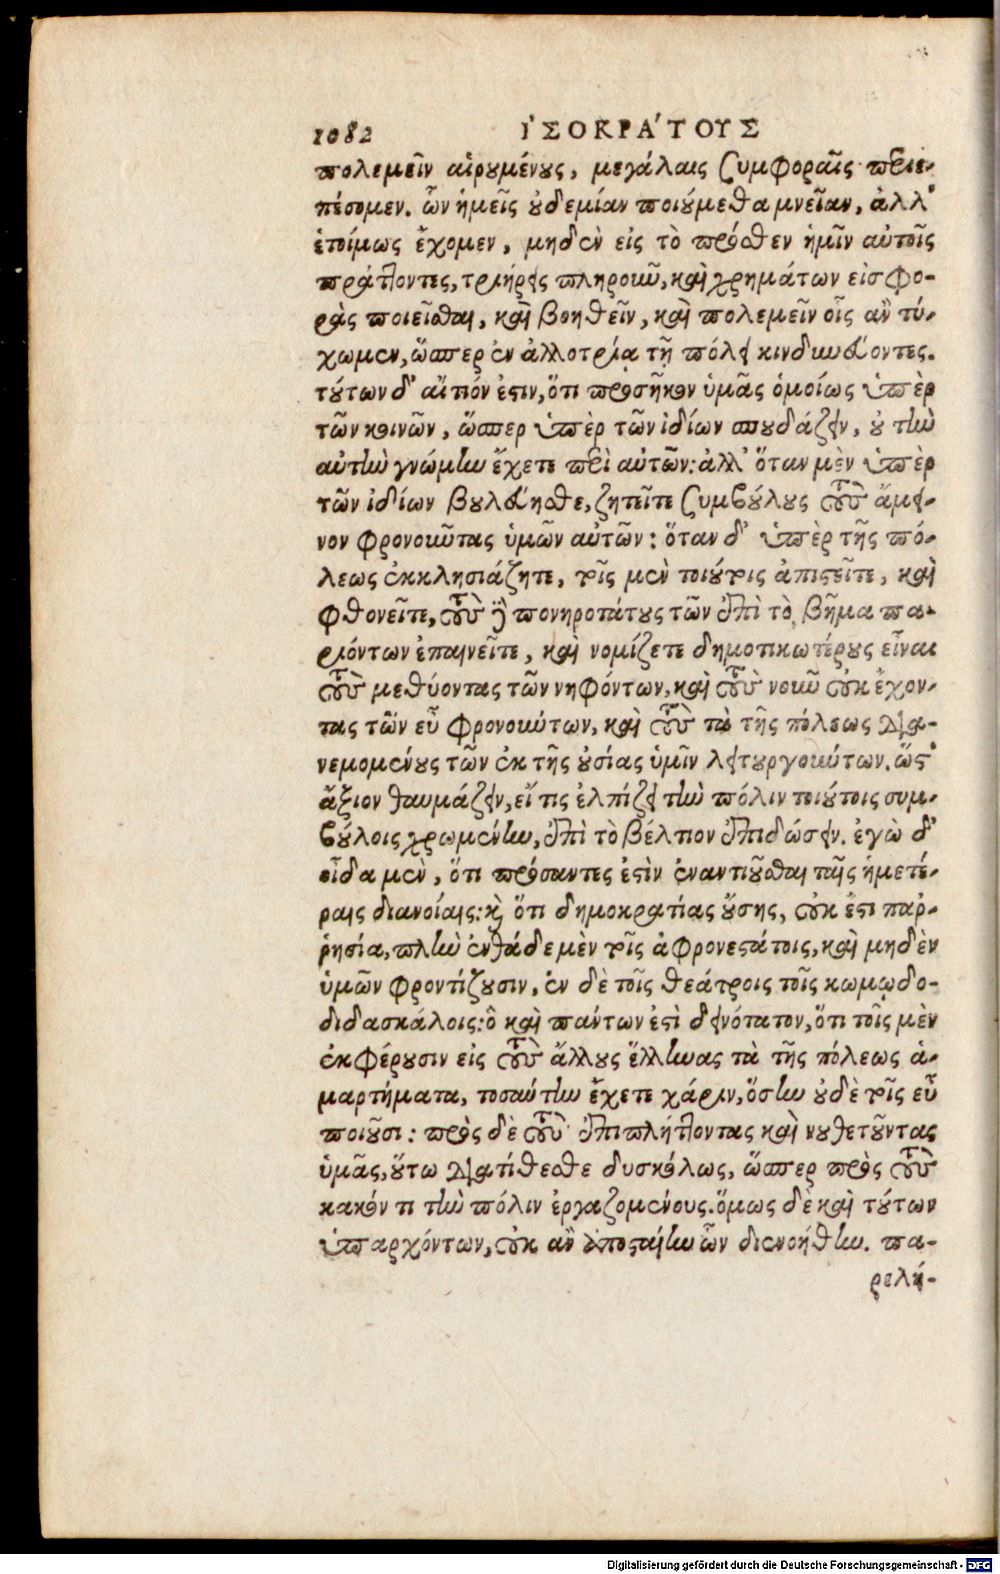 1082 ἸΣΟΚΡΆΤΟΥΣ
πολεμεῖν αἱρουμένους, μεγάλαις συμφοραῖς περιε-
πέσομεν. ὧν ἡμεῖς οὐδεμίαν ποιούμεθα μνείαν, ἀλλ'
ἑτοίμως ἔχομεν, μηδὲν εἰς τὸ πρόσθεν ἡμῖν αὐτοῖς
πράττοντες, τριήρεις πληροῦν, καὶ χρημάτων εἰσφο-
ρὰς ποιεῖσθαι, καὶ βοηθεῖν, καὶ πολεμεῖν οἷς ἂν τύ-
χωμεν, ὥσπερ ἐν ἀλλοτρίᾳ τῇ πόλει κινδυνεύοντες.
τούτων δ' αἴτιόν ἐστιν, ὅτι προσῆκον ὑμᾶς ὁμοίως ὑπὲρ
τῶν κοινῶν, ὥσπερ ὑπὲρ τῶν ἰδίων σπουδάζειν, οὐ τὴν
αὐτὴν γνώμην ἔχετε περὶ αὐτῶν: ἀλλ' ὅταν μὲν ὑπὲρ
τῶν ἰδίων βουλεύησθε, ζητεῖτε συμβούλους τοὺς ἄμει-
νον φρονοῦντας ὑμῶν αὐτῶν: ὅταν δ' ὑπὲρ τῆς πό-
λεως ἐκκλησιάζητε, τοῖς μὲν τοιούτοις ἀπιστεῖτε, καὶ
φθονεῖτε, τοὺς δὲ πονηροτάτους τῶν ἐπὶ τὸ βῆμα πα-
ριόντων ἐπαινεῖτε, καὶ νομίζετε δημοτικωτέρους εἶναι
τοὺς μεθύοντας τῶν νηφόντων, καὶ τοὺς νοῦν οὐκ ἔχον-
τας τῶν εὖ φρονούντων, καὶ τοὺς τὰ τῆς πόλεως δια-
νεμομένους τῶν ἐκ τῆς οὐσίας ὑμῖν λειτουργούντων. ὥς'
ἄξιον θαυμάζειν, εἴ τις ἐλπίζει τὴν πόλιν τοιούτοις συμ-
βούλοις χρωμένην, ἐπὶ τὸ βέλτιον ἐπιδώσειν. ἐγὼ δ'
οἶδα μὲν, ὅτι πρόσαντες ἐστὶν ἐναντιοῦσθαι ταῖς ἡμετέ-
ραις διανοίαις: καὶ ὅτι δημοκρατίας οὔσης, οὐκ ἔστι παῤ-
ῥησία, πλὴν ἐνθάδε μὲν τοῖς ἀφρονεστάτοις, καὶ μηδὲν
ὑμῶν φροντίζουσιν, ἐν δὲ τοῖς θεάτροις τοῖς κωμῳδο-
διδασκάλοις: ὃ καὶ πάντων ἐστὶ δεινότατον, ὅτι τοῖς μὲν
ἐκφέρουσιν εἰς τοὺς ἄλλους ἕλληνας τὰ τῆς πόλεως ἁ-
μαρτήματα, τοσαύτην ἔχετε χάριν, ὅσην οὐδὲ τοῖς εὖ
ποιοῦσι: πρὸς δὲ τοὺς ἐπιπλήττοντας καὶ νουθετοῦντας
ὑμᾶς, οὕτω διατίθεσθε δυσκόλως, ὥσπερ πρὸς τοὺς
κακόν τι τὴν πόλιν ἐργαζομένους. ὅμως δὲ καὶ τούτων
ὑπαρχόντων, οὐκ ἂν ἀποσταίην ὧν διενοήθην. πα-
ρελή-
Digitalisierung gefördert durch die Deutsche Forschungsgemeinschaft - DFG